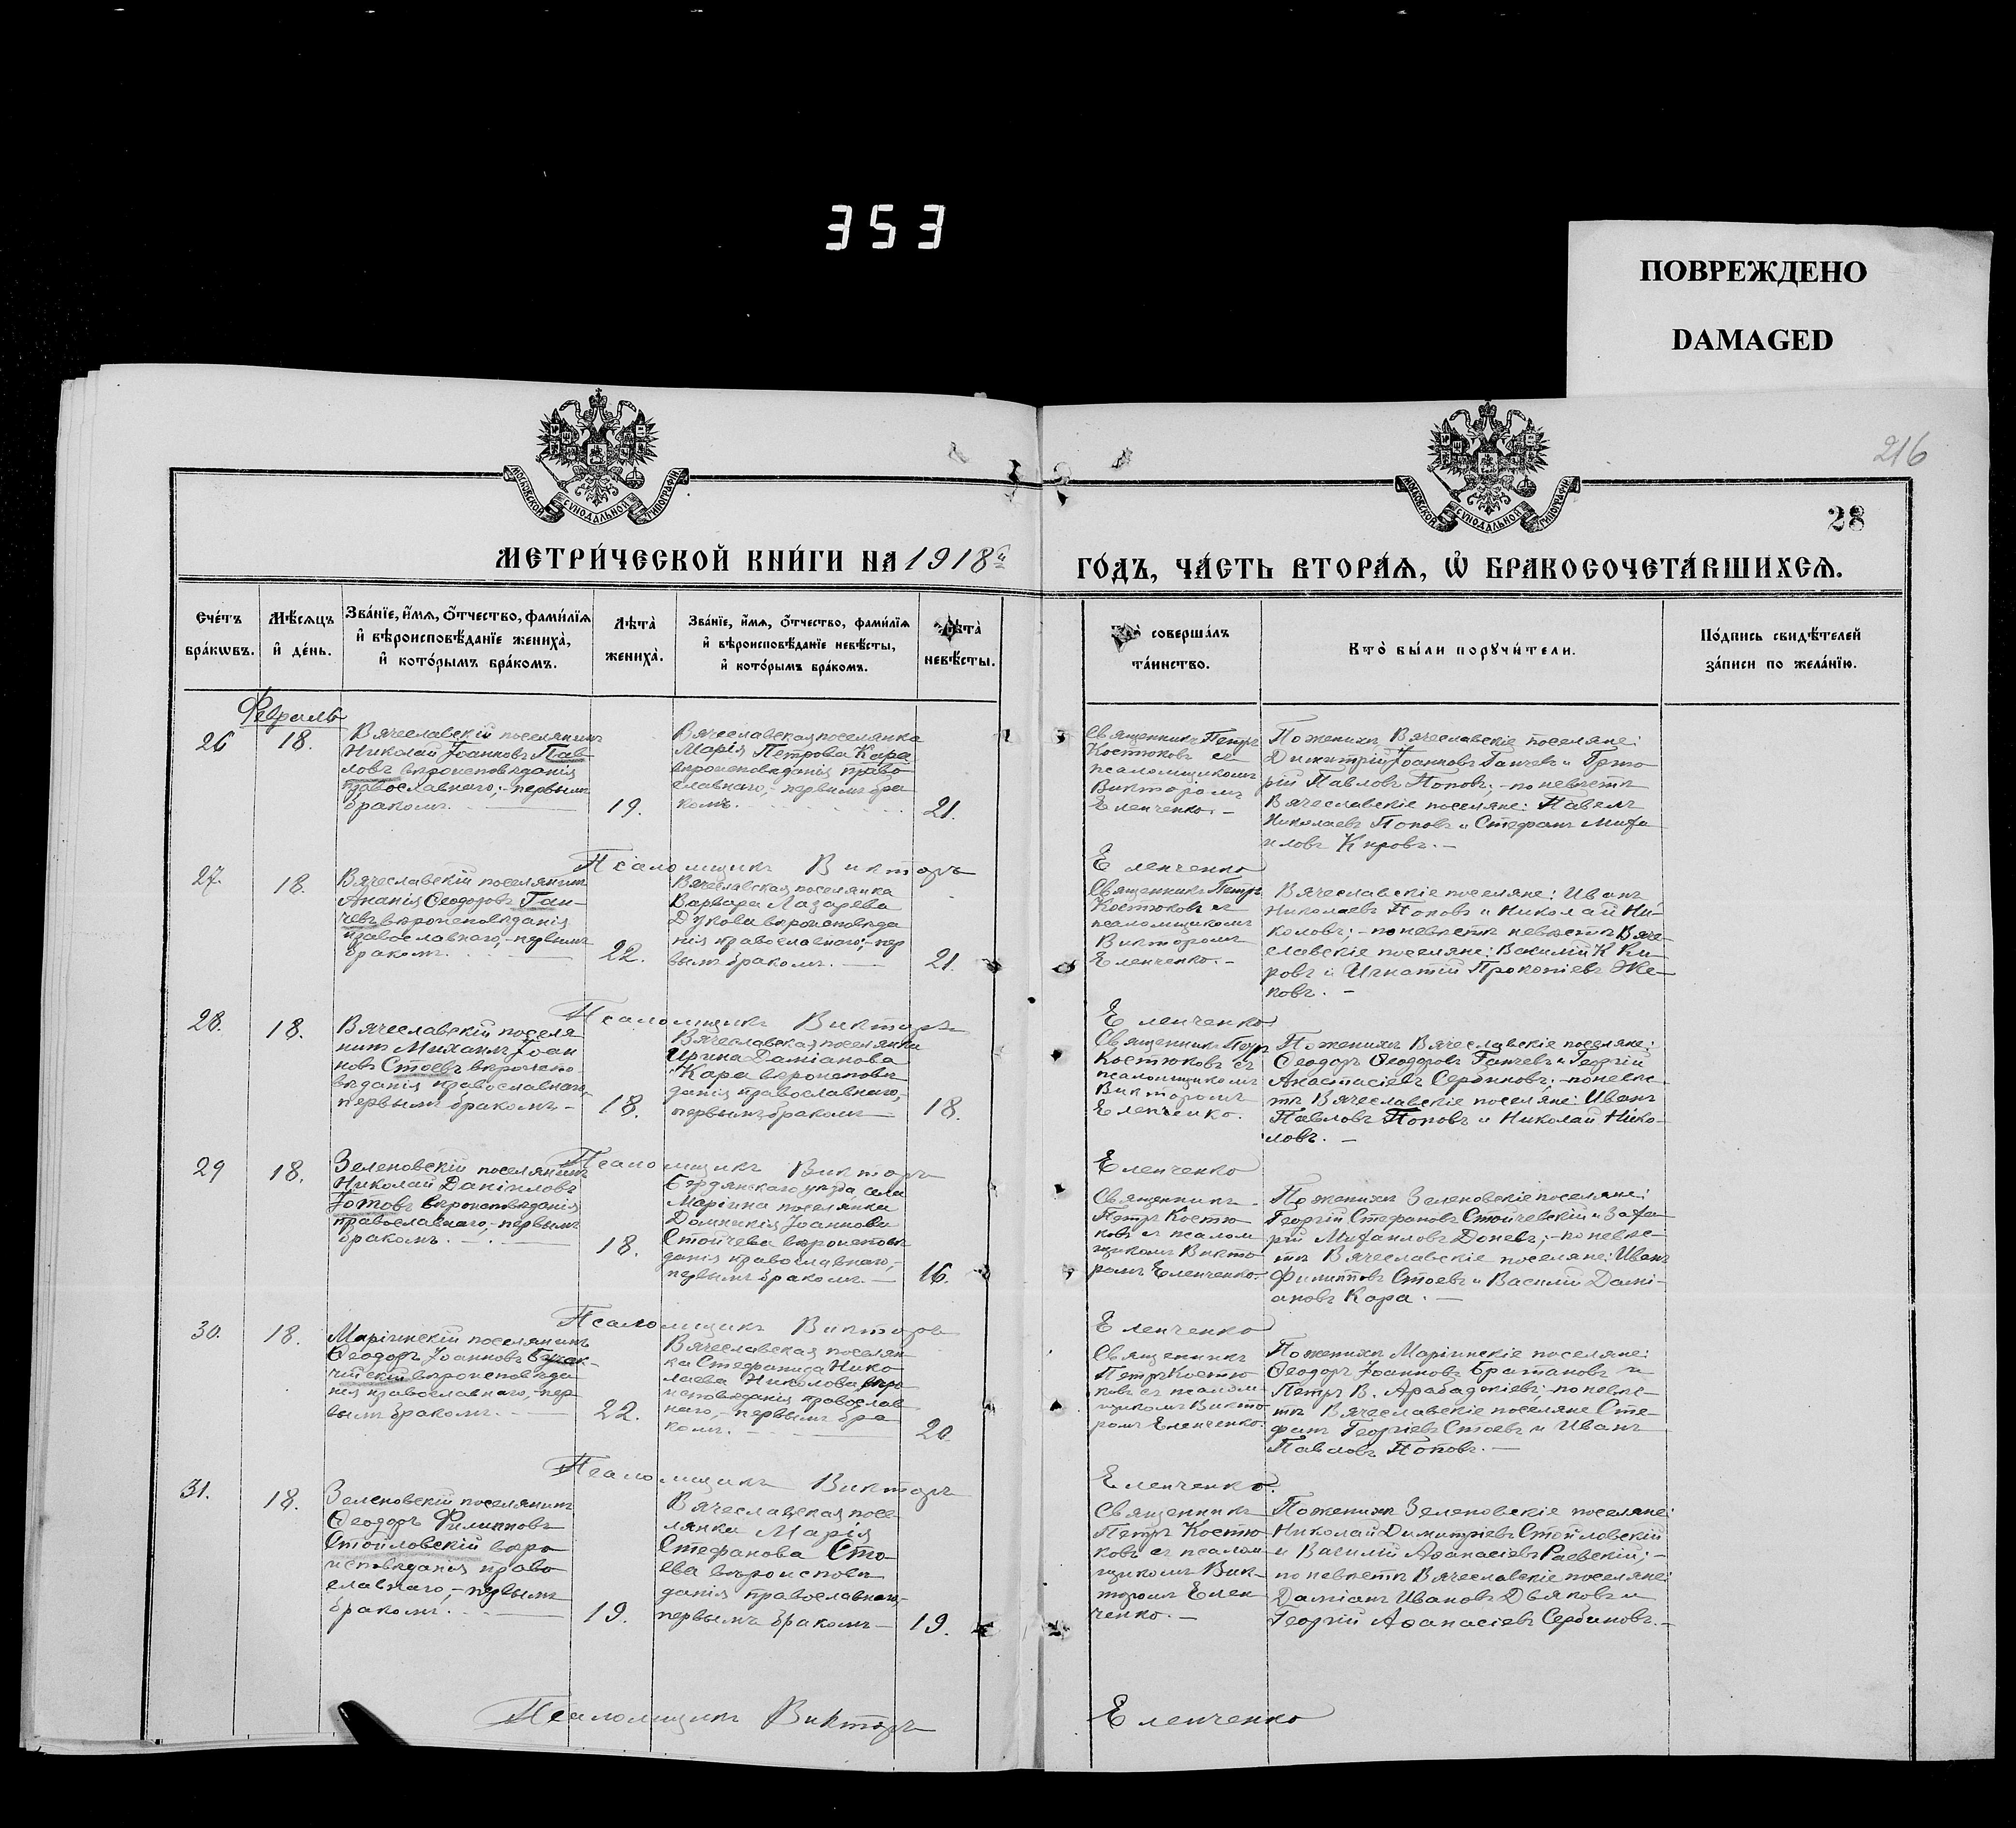 353
ПОВРЕЖДЕНО
DAMAGED
216
28
МОСКОВСКОЙ СУНОДАЛЬНОЙ ТИПОГРАФІИ
МОСКОВСКОЙ СУНОДАЛЬНОЙ ТИПОГРАФІИ
МЕТРИ́ЧЕСКОЙ КНИ́ГИ НА 1918й
ГО́ДЪ, ЧА́СТЬ ВТОРА́Ѧ, Ѽ БРАКОСОЧЕТА́ВШИХСѦ.
Сче́тъ
бра́кѡвъ.
Мѣ́сѧцъ
и҆ де́нь.
Зва́нїе, и҆́мѧ, ѻ҆́тчество, фами́лїѧ
и҆ вѣроисповѣ́данїе жениха̀,
и҆ кото́рымъ бра́комъ.
Лѣта̀
жениха̀.
Зва́нїе, и҆́мѧ, ѻ҆́тчество, фами́лїѧ
и҆ вѣроисповѣ́данїе невѣ́сты,
и҆ кото́рымъ бра́комъ.
Лѣта̀
невѣ́сты.
соверша́лъ
та́инство.
Кто̀ бы́ли порꙋчи́тели.
По́дпись свидѣ́телей
за́писи по жела́нїю.
Февраль
26
18.
Вячеславскій поселянинъ
Николай Іоанновъ Пав-
ловъ вѣроисповѣданія
православнаго,- первымъ
бракомъ.
19.
Вячеславская поселянка
Марія Петрова Кара
вѣроисповѣданія право
славнаго,- первымъ бра
комъ.
21.
Священникъ Петръ
Костюковъ съ
псаломщикомъ
Викторомъ
Еленченко.-
По женихѣ Вячеславскіе поселяне:
Димитрій Іоанновъ Ганчевъ и
рій Павловъ Поповъ;- по невѣстѣ
Вячеславскіе поселяне: Павелъ
Николаевъ Поповъ и Стефанъ Миха
иловъ Кировъ.-
Псаломщикъ Викторъ Еленченко
27.
18.
Вячеславскій поселянинъ
Ананія Ѳеодоровъ Ган-
чевъ вѣроисповѣданія
православнаго,- первымъ
бракомъ.
22.
Вячеславская поселянка
Варвара Лазарева
Дукова вѣроисповѣда
нія православнаго,- пер
вымъ бракомъ.
21.
Священникъ Петръ
Костюковъ съ
псаломщикомъ
Викторомъ
Еленченко.-
Вячеславскіе поселяне: Иванъ
Николаевъ Поповъ и Николай Ни-
коловъ;- по невѣстѣ невѣстѣ Вяче-
славскіе поселяне: Василий К Ки-
ровъ и Игнатій Прокопіевъ Же-
ковъ.-
Псаломщикъ Викторъ Еленченко
28.
18.
Вячеславскій поселя
нинъ Михаилъ Іоан
новъ Стоевъ вѣроиспо
вѣданія православнаго,
первымъ бракомъ-
18.
Вячеславская поселянка
Ирина Даміанова
Кара вѣроисповѣ
данія православнаго,
первымъ бракомъ
18.
Священникъ Петръ
Костюковъ съ
псаломщикомъ
Викторомъ
Еленченко.
По женихѣ Вячеславскіе поселяне:
Ѳеодоръ Ѳеодоровъ Ганчевъ и Георгій
Анастасіевъ Сербиновъ;- по невѣс-
тѣ Вячеславскіе поселяне: Иванъ
Павловъ Поповъ и Николай Нико-
ловъ.-
Псаломщикъ Викторъ Еленченко
29
18.
Зеленовскій поселянинъ
Николай Даніиловъ
Іотовъ вѣроисповѣданія
православнаго,- первымъ
бракомъ.
18.
Бердянскаго уѣзда, села
Маріина поселянка
Домникія Іоаннова
Стойчева вѣроисповѣ
данія православнаго,-
первымъ бракомъ.-
16.
Священникъ
Петръ Костю
ковъ съ псалом
щикомъ Викто
ромъ Еленченко.
По женихѣ Зеленовскіе поселяне:
Георгій Стефановъ Стойчевскій и Заха
рій Михаиловъ Доневъ;- по невѣс-
тѣ Вячеславскіе поселяне: Иванъ
Филипповъ Стоевъ и Василий Дамі-
ановъ Кара.-
Псаломщикъ Викторъ Еленченко
30.
18.
Маріинскій поселянинъ
Ѳеодоръ Іоанновъ
чійскій вѣроисповѣда
нія православнаго,- пер
вымъ бракомъ.
22.
Вячеславская поселян
ка Стефанида Нико
лаева Николова вѣро
исповѣданія православ
наго,- первымъ бра
комъ.
20
Священникъ
Петръ Костю
ковъ съ псалом-
щикомъ Викто
ромъ Еленченко.
По женихѣ Маріинскіе поселяне:
Ѳеодоръ Іоанновъ Братановъ и
Петръ В. Арабаджіевъ;- по невѣс-
тѣ Вячеславскіе поселяне Сте-
фанъ Георгіевъ Стоевъ и Иванъ
Павловъ Поповъ.-
Псаломщикъ Викторъ Еленченко.
31.
18.
Зеленовскій поселянинъ
Ѳеодоръ Филипповъ
Стоиловскій вѣро
исповѣданія право
славнаго,- первымъ
бракомъ.
19.
Вячеславская посе-
лянка Марія
Стефанова Сто-
ева вѣроисповѣ
данія православнаго,-
первымъ бракомъ-
19.
Священникъ
Петръ Костю
ковъ съ псалом-
щикомъ Вик-
торомъ Елен
ченко.-
По женихѣ Зеленовскіе поселяне:
Николай Димитріевъ Стоиловскій
и Василий Аѳанасіевъ Раевскій;-
по невѣстѣ Вячеславскіе поселяне:
Даміанъ Ивановъ Дьяковъ и
Георгій Аѳанасіевъ Сербиновъ.-
Псаломщикъ Викторъ Еленченко